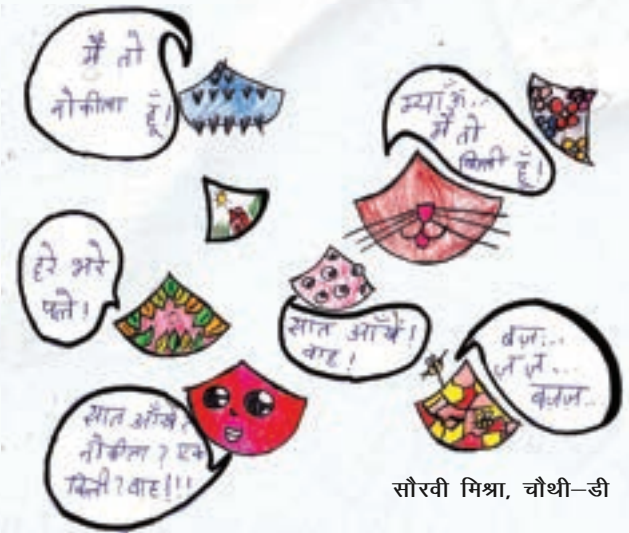 मैं तो
नोकीला हूँ!
म्याऊँ..
मैं तो
बिल्ली हूँ!
हरे भरे
पत्ते!
सात आँखें!
वाह!
बज़...
ज़ ज़...
बज़ज़..
सात आँखें?
नोकीला? एक
बिल्ली? वाह!!!
सौरवी मिश्रा, चौथी–डी